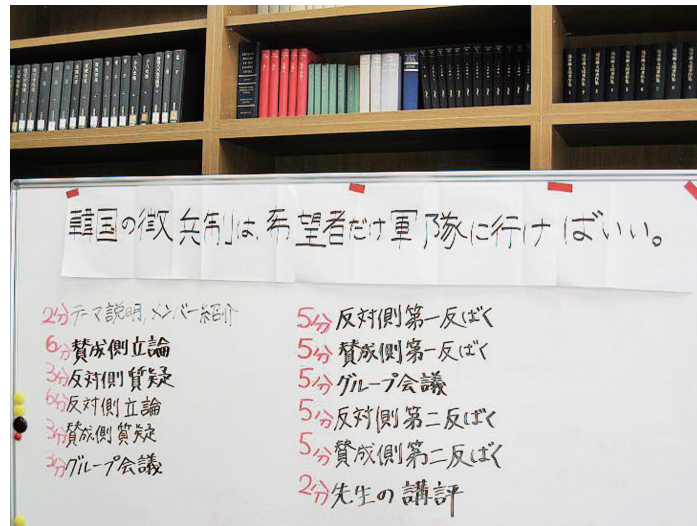 韓国の徴兵制は、希望者だけ軍隊に行けばいい。
2分テーマ説明,メンバー紹介
6分賛成側立論
3分反対側質疑
6分反対側立論
3分賛成側質疑
3分グループ会議
5分反対側第一反ばく
5分賛成側第一反ばく
5分グループ会議
5分反対側第二反ばく
5分賛成側第二反ばく
2分先生の講評